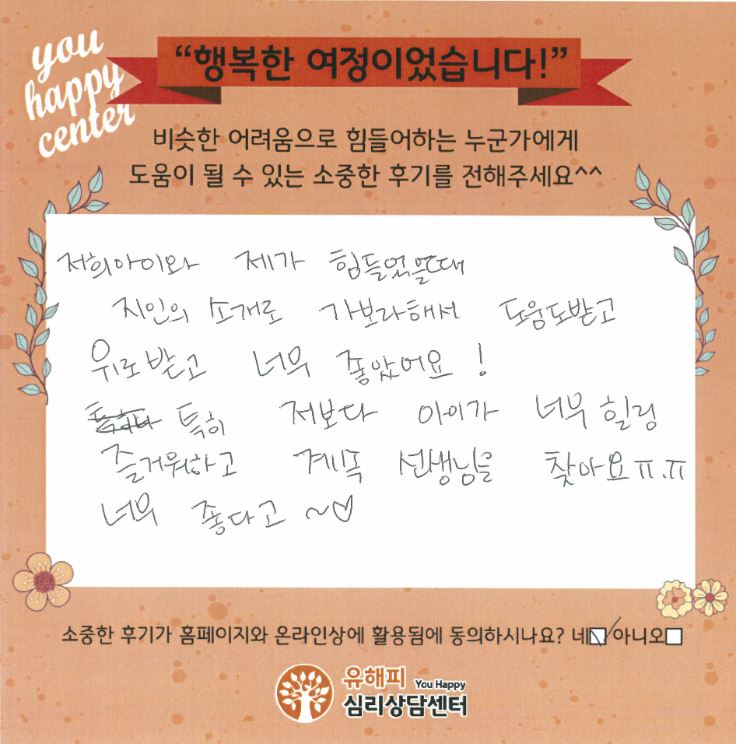 you
happy
center
“행복한 여정이었습니다!”
비슷한 어려움으로 힘들어하는 누군가에게
도움이 될 수 있는 소중한 후기를 전해주세요^^
저희아이와 제가 힘들었을때
지인의 소개로 가보라해서 도움도받고
위로받고 너무 좋았어요!
특히 저보다 아이가 너무 힐링
즐거워하고 계속 선생님을 찾아요ㅠ.ㅠ
너무 좋다고 ~♡
소중한 후기가 홈페이지와 온라인상에 활용됨에 동의하시나요? 네☑ 아니오□
유해피 You Happy
심리상담센터